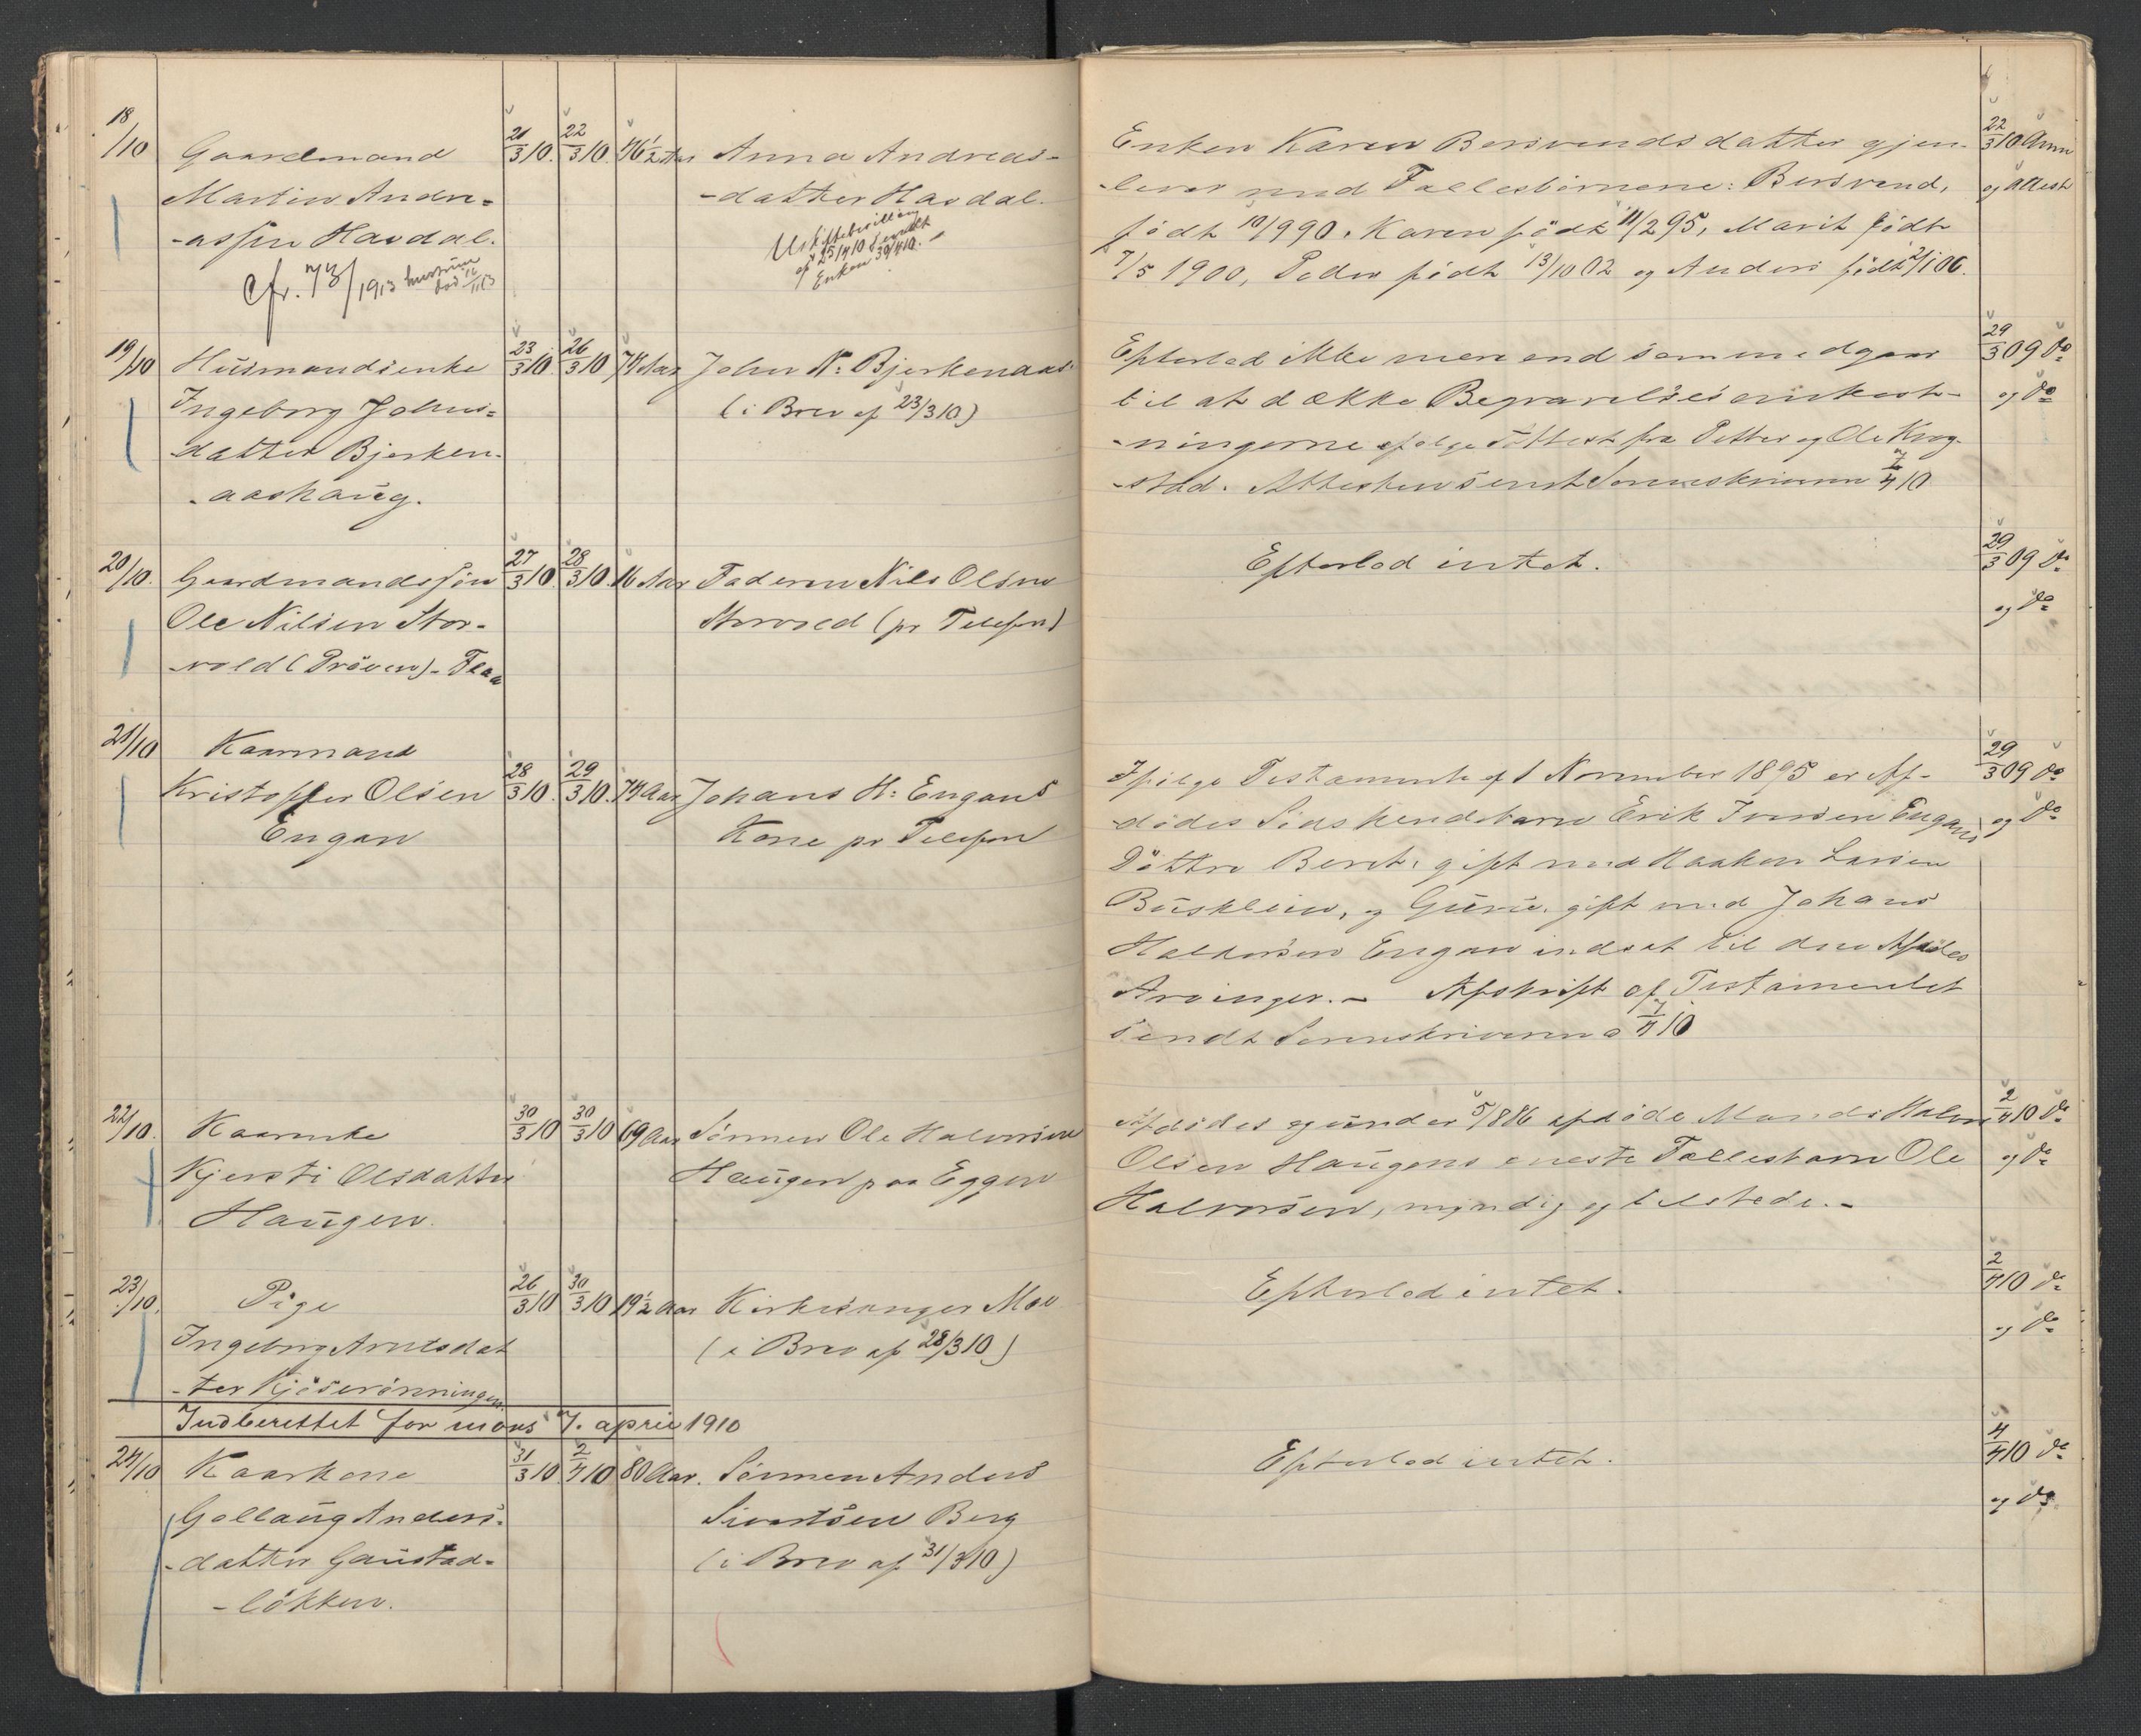 18/10 Gaardmand 21/3 10. 22/3 10. 46 1/2 Aar Anna Andreas-
Martin Andre-
-datter Havdal.
-assen Havdal.
Uskiftebevilling
af 25/4 10 sendt
Enken 30/4 10.
Cfr. 73/1913
19/10 Husmandsenke 23/3 10. 26/3 10 74 Aar John N: Bjerkenaas
Ingeborg Johns-
(i Brev af 23/3 10)
datter Bjerken-
-aashaug.
20/10. Gaardmandssøn 27/3 10. 28/3 10. 16 Aar Faderen Nils Olsen
Ole Nilsen Stor-
Storvold (pr Telefon)
-vold (Prøven) - Flaa
21/10 Kaarmand
Kristoffer Olsen 28/3 10. 29/3 10. 74 Aar Johans H: Engans
Engan
Kone pr Telefon
22/10. Kaarenke 30/3 10 30/3 10 69 Aar Sønnen Ole Halvorsen
Kjersti Olsdatter
Haugen paa Eggen
Haugen.
23/10. Pige 26/3 10 30/3 10 19 1/2 Aar Kirkesanger Moe
Ingeborg Arntsdat
(i Brev af 28/3 10)
-ter Kjøserønningen.
Indberettet for mars 7. april 1910
24/10 Kaarkone 31/3 10. 2/4 10 80 Aar. Sønnen Anders
Gollaug Anders-
Sivertsen Berg
-datter Gaustad-
(i Brev af 31/3 10)
-løkken.
Enken Karen Bersvendsdatter gjen- 22/3 10 Anm
-lever med Fællesbørnene: Bersvend, og Attest
født 10/9 90, Karen født 11/2 95, Marit født
7/5 1900, Peder født 13/10 02 og Anders født 2/1 06.
Efterlod ikke mere end som medgaar 29/3 09 do
til at dække Begravelsesomkost- og do
-ningerne ifølge Attest fra Petter og Ole Krog-
-stad. Attesten sendt Sorenskriveren 7/4 10
Efterlod intet. 29/3 09 do
og do
Ifølge Testamente af 1 November 1895 er Af- 29/3 09 do
-dødes Sødskendebarn Erik Iversen Engans og do
Døttre Beret, gift med Haakon Larsen
Busklein, og Guru, gift med Johans
Halvorsen Engan indsat til den Afdødes
Arvinger. - Afskrift af Testamentet
sendt Sorenskriveren 7/4 10
Afdødes og under 5/1 86 afdøde Mands Halvor 2/4 10 do
Olsen Haugens eneste Fællesbarn Ole og do
Halvorsen, myndig og tilstede. -
Efterlod intet. 2/4 10 do
og do
Efterlod intet. 4/4 10 do
og do